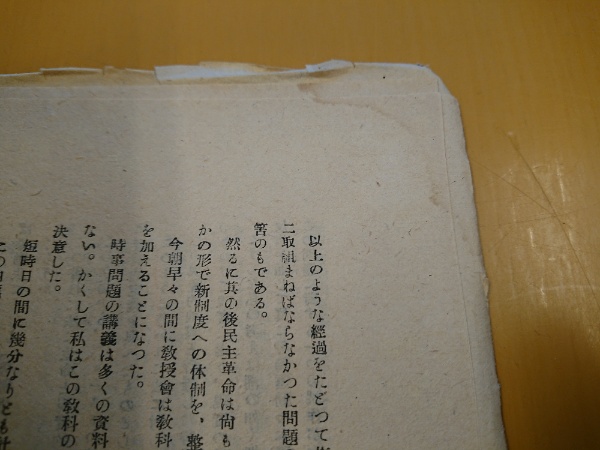 以上のような経過をたどつて
二取組まねばならなかつた問題
筈のもである。
然るに其の後民主革命は尙も
かの形で新制度への体制を、整
今朝早々の間に敎授會は敎科
を加えることになつた。
時事問題の講義は多くの資料
ない。かくして私はこの敎科の
決意した。
短時日の間に幾分なりとも
この